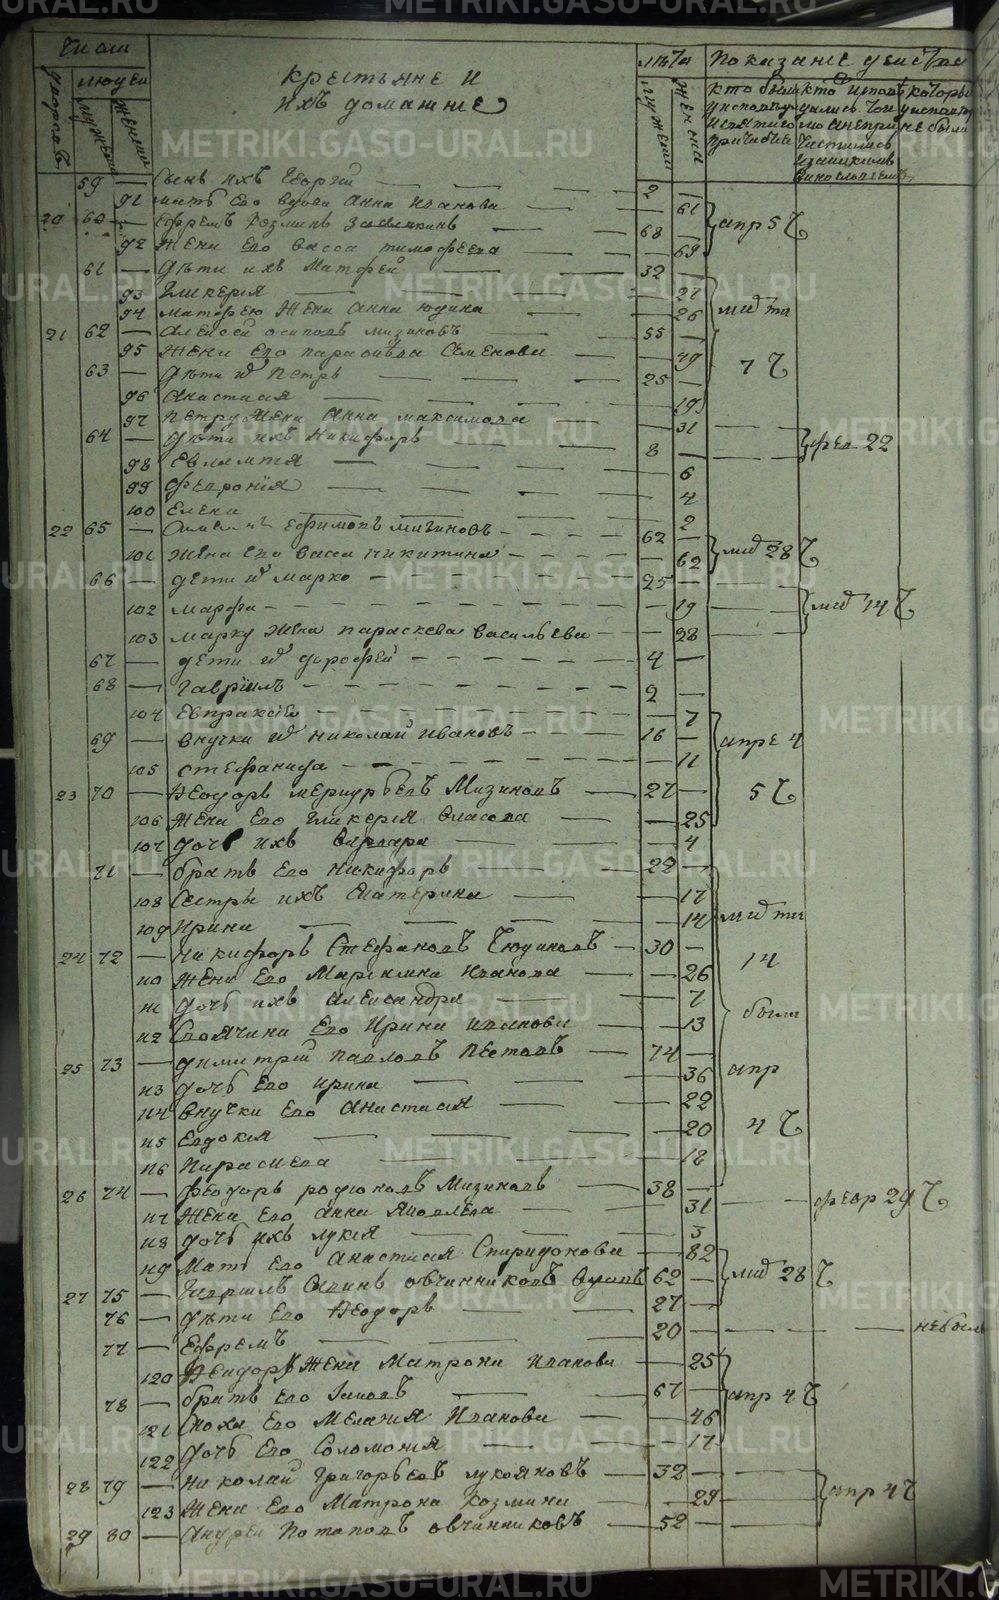 Число
людей
дворовъ
мужеска
женска
Крестьяне и
ихъ домашніе
лѣта
мужеска
женска
Показаніе дѣйства
59 — Сынъ ихъ Георгій — 2 —
91 мать его вдова Анна Иванова — 61
20 60 — Ефремъ Козминъ — 68 — апр 5 Ч
92 Жена его Васса Тимофеева — 69
61 — Дѣти ихъ Матфей — 32 —
93 Гликерія — 27
94 Матфею Жена Анна Юдина — 26
21 62 — Алексей Осиповъ Мизиновъ — 55 —
95 Жена его Параскева Семенова — 49
7 Ч
63 — Дѣти их Петръ — 25 —
96 Анастасия — 19
97 Петру Жена Анна Максимова — 31
64 — Дѣти ихъ Никифоръ — 8 — фев 22
98 Евлампія — 6
99 Феврония — 4
100 Елена — 2
22 65 — Ефимовъ Мизиновъ — 62 —
101 Жена его Васса Никитина — 62 28 Ч
66 — дети их Марко — 25 —
102 Марфа — 19 14 Ч
103 Марку Жена Параскева Васильева — 28
67 — дети их Дорофей — 4 —
68 — Гавріилъ — 2 —
104 Евпраксія — 7
69 — внучки их Николай Ивановъ — 16 — апре 4
105 Стефанида — 11
23 70 — Феодоръ Меркурьевъ Мизиновъ — 27 — 5 Ч
106 Жена его Гликерія Власова — 25
107 дочь ихъ Варвара — 4
71 — братъ его Никифоръ — 22 —
108 Сестры ихъ Катерина — 17
109 Ирина — 14
24 72 — Никифоръ Стефановъ Чюдиновъ — 30 —
14
110 Жена его Мариамна Иванова — 26
111 дочь ихъ Александра — 7
были
112 Своячина его Ирина Иванова — 13
25 73 — Димитрій Павловъ Пестовъ — 74 —
апр
113 дочь его Ирина — 36
114 внучки его Анастасия — 22
4 Ч
115 Евдокия — 20
116 Параскева — 12
26 74 — Феодоръ Родионовъ Мизиновъ — 38 —
117 Жена его Анна Яковлева — 31 февр 29 Ч
118 дочь ихъ Лукия — 3
119 Мать его Анастасия Спиридонова — 82
27 75 — Гавриилъ Саvинъ Овчинниковъ вдовъ 62 — 28 Ч
76 — Дѣти его Феодоръ — 27 —
77 — Ефремъ — 20 — не были
120 Феодору Жена Матрона Иванова — 25
78 — братъ его Зиновъ — 67 — апр 4 Ч
121 Сноха его Мелания Иванова — 46
122 дочь его Соломония — 17
28 79 — Николай Григорьевъ Лукояновъ — 32 —
апр 4 Ч
123 Жена его Матрона Козмина — 29
29 80 — Андрей Потаповъ Овчинниковъ — 52 —